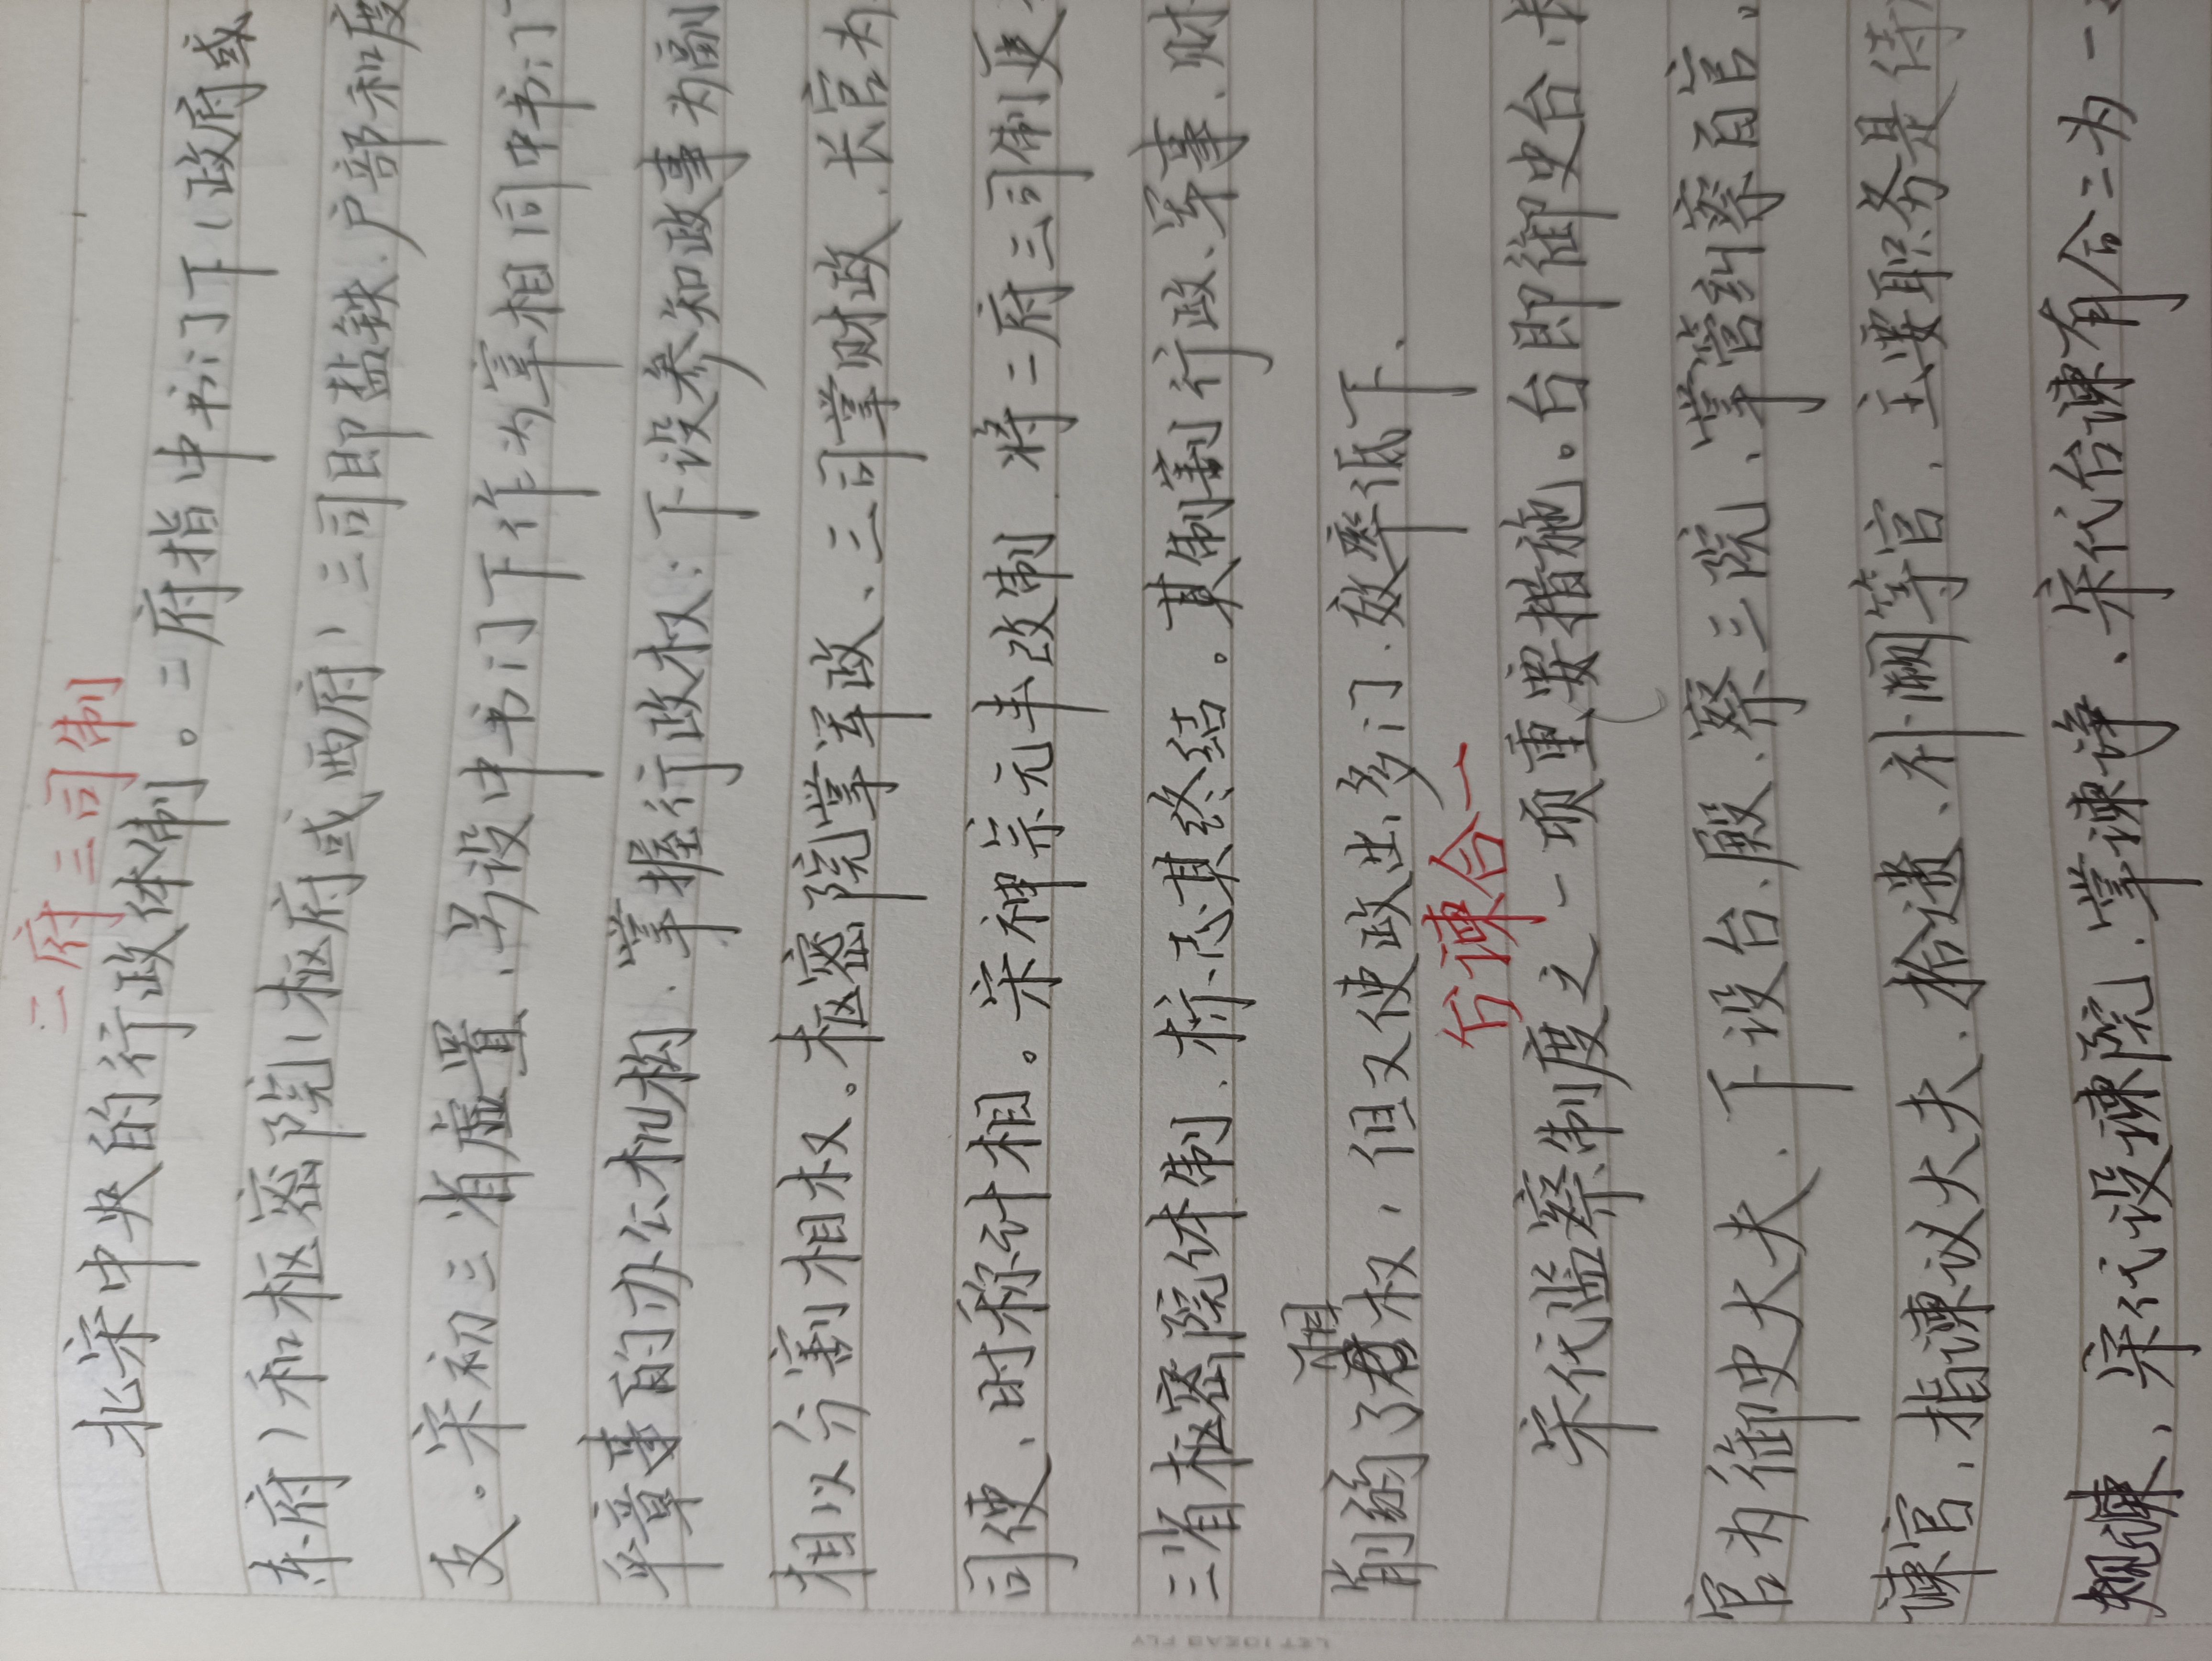 二府三司制
北宋中央的行政体制。二府指中书门下(政府或
东府)和枢密院(枢府或西府)三司即盐铁、户部和度
支。宋初三省虚置、另设中书门下作为宰相同中书门
平章事的办公机构、掌握行政权;下设参知政事为副
相以分割相权。枢密院掌军政、三司掌财政、长官为
司使、时称计相。宋神宗元丰改制 将二府三司制更
三省枢密院体制、标志其终结。其制割行政、军事、财
削弱了相权,但又使政出多门、效率低下、
台谏合一
宋代监察制度之一项重要措施。台即御史台、
官为御史大夫、下设台、殿、察三院、掌管纠察百官。
谏官、指谏议大夫、拾遗、补阙等官、主要职务是侍
规谏、宋代设谏院、掌谏诤、宋代台谏有合二为一
LET IDEAS FLY